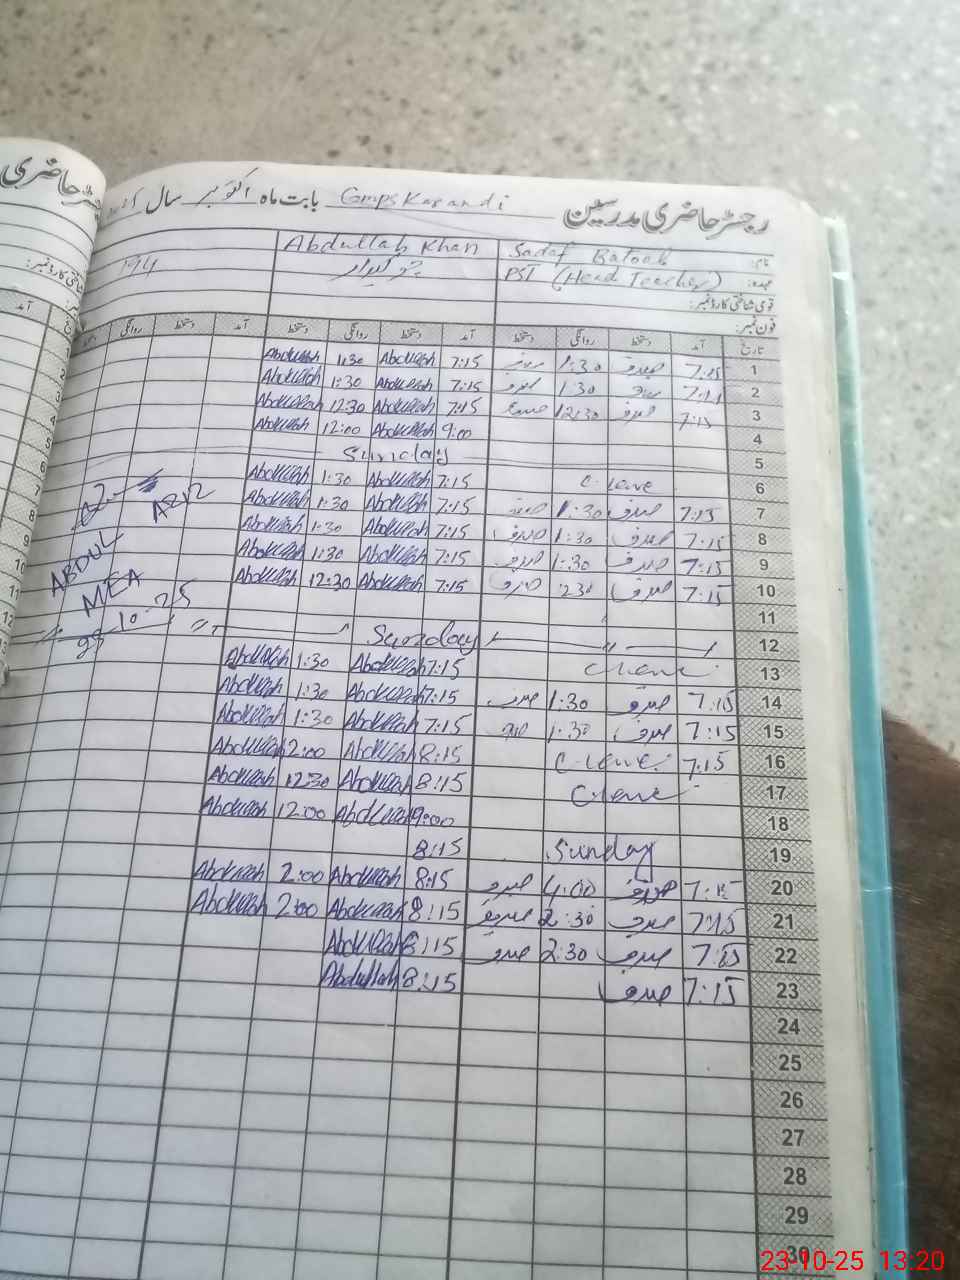 رجسٹر حاضری مدرسین Gmps Karandi بابت ماہ اکتوبر سال
نام: Sadaf Batool Abdullah Khan
عہدہ: PST (Head Teacher) چوکیدار
قومی شناختی کارڈ نمبر:
فون نمبر:
تاریخ آمد دستخط روانگی دستخط آمد دستخط روانگی دستخط آمد دستخط روانگی
1 7:15 صدف 1:30 7:15 Abdullah 1:30 Abdullah
2 7:15 1:30 صدف 7:15 Abdullah 1:30 Abdullah
3 7:15 صدف 12:30 صدف 7:15 Abdullah 12:30 Abdullah
4 9:00 Abdullah 12:00 Abdullah
5 Sunday
6 C-leave 7:15 Abdullah 1:30 Abdullah
7 7:15 صدف 1:30 صدف 7:15 Abdullah 1:30 Abdullah
8 7:15 صدف 1:30 صدف 7:15 Abdullah 1:30 Abdullah
9 7:15 صدف 1:30 صدف 7:15 Abdullah 1:30 Abdullah
10 7:15 صدف صدف 7:15 Abdullah 12:30 Abdullah
11
12 Sunday
13 7:15 Abdullah 1:30 Abdullah
14 7:15 صدف 1:30 صدف 7:15 Abdullah 1:30 Abdullah
15 7:15 صدف 1:30 صدف 7:15 Abdullah 1:30 Abdullah
16 7:15 C-leave 8:15 Abdullah 2:00 Abdullah
17 C-leave 8:15 Abdullah 12:30 Abdullah
18 9:00 Abdullah 12:00 Abdullah
19 Sunday 8:15
20 7:15 صدف 4:00 صدف 8:15 Abdullah 2:00 Abdullah
21 7:15 صدف 2:30 صدف 8:15 Abdullah 2:00 Abdullah
22 7:15 صدف 2:30 صدف 8:15 Abdullah
23 7:15 صدف 8:15 Abdullah
24
25
26
27
28
29
30
ABDUL AZIZ
MEA
10-25
حاضری
شناختی کارڈ نمبر:
23-10-25 13:20